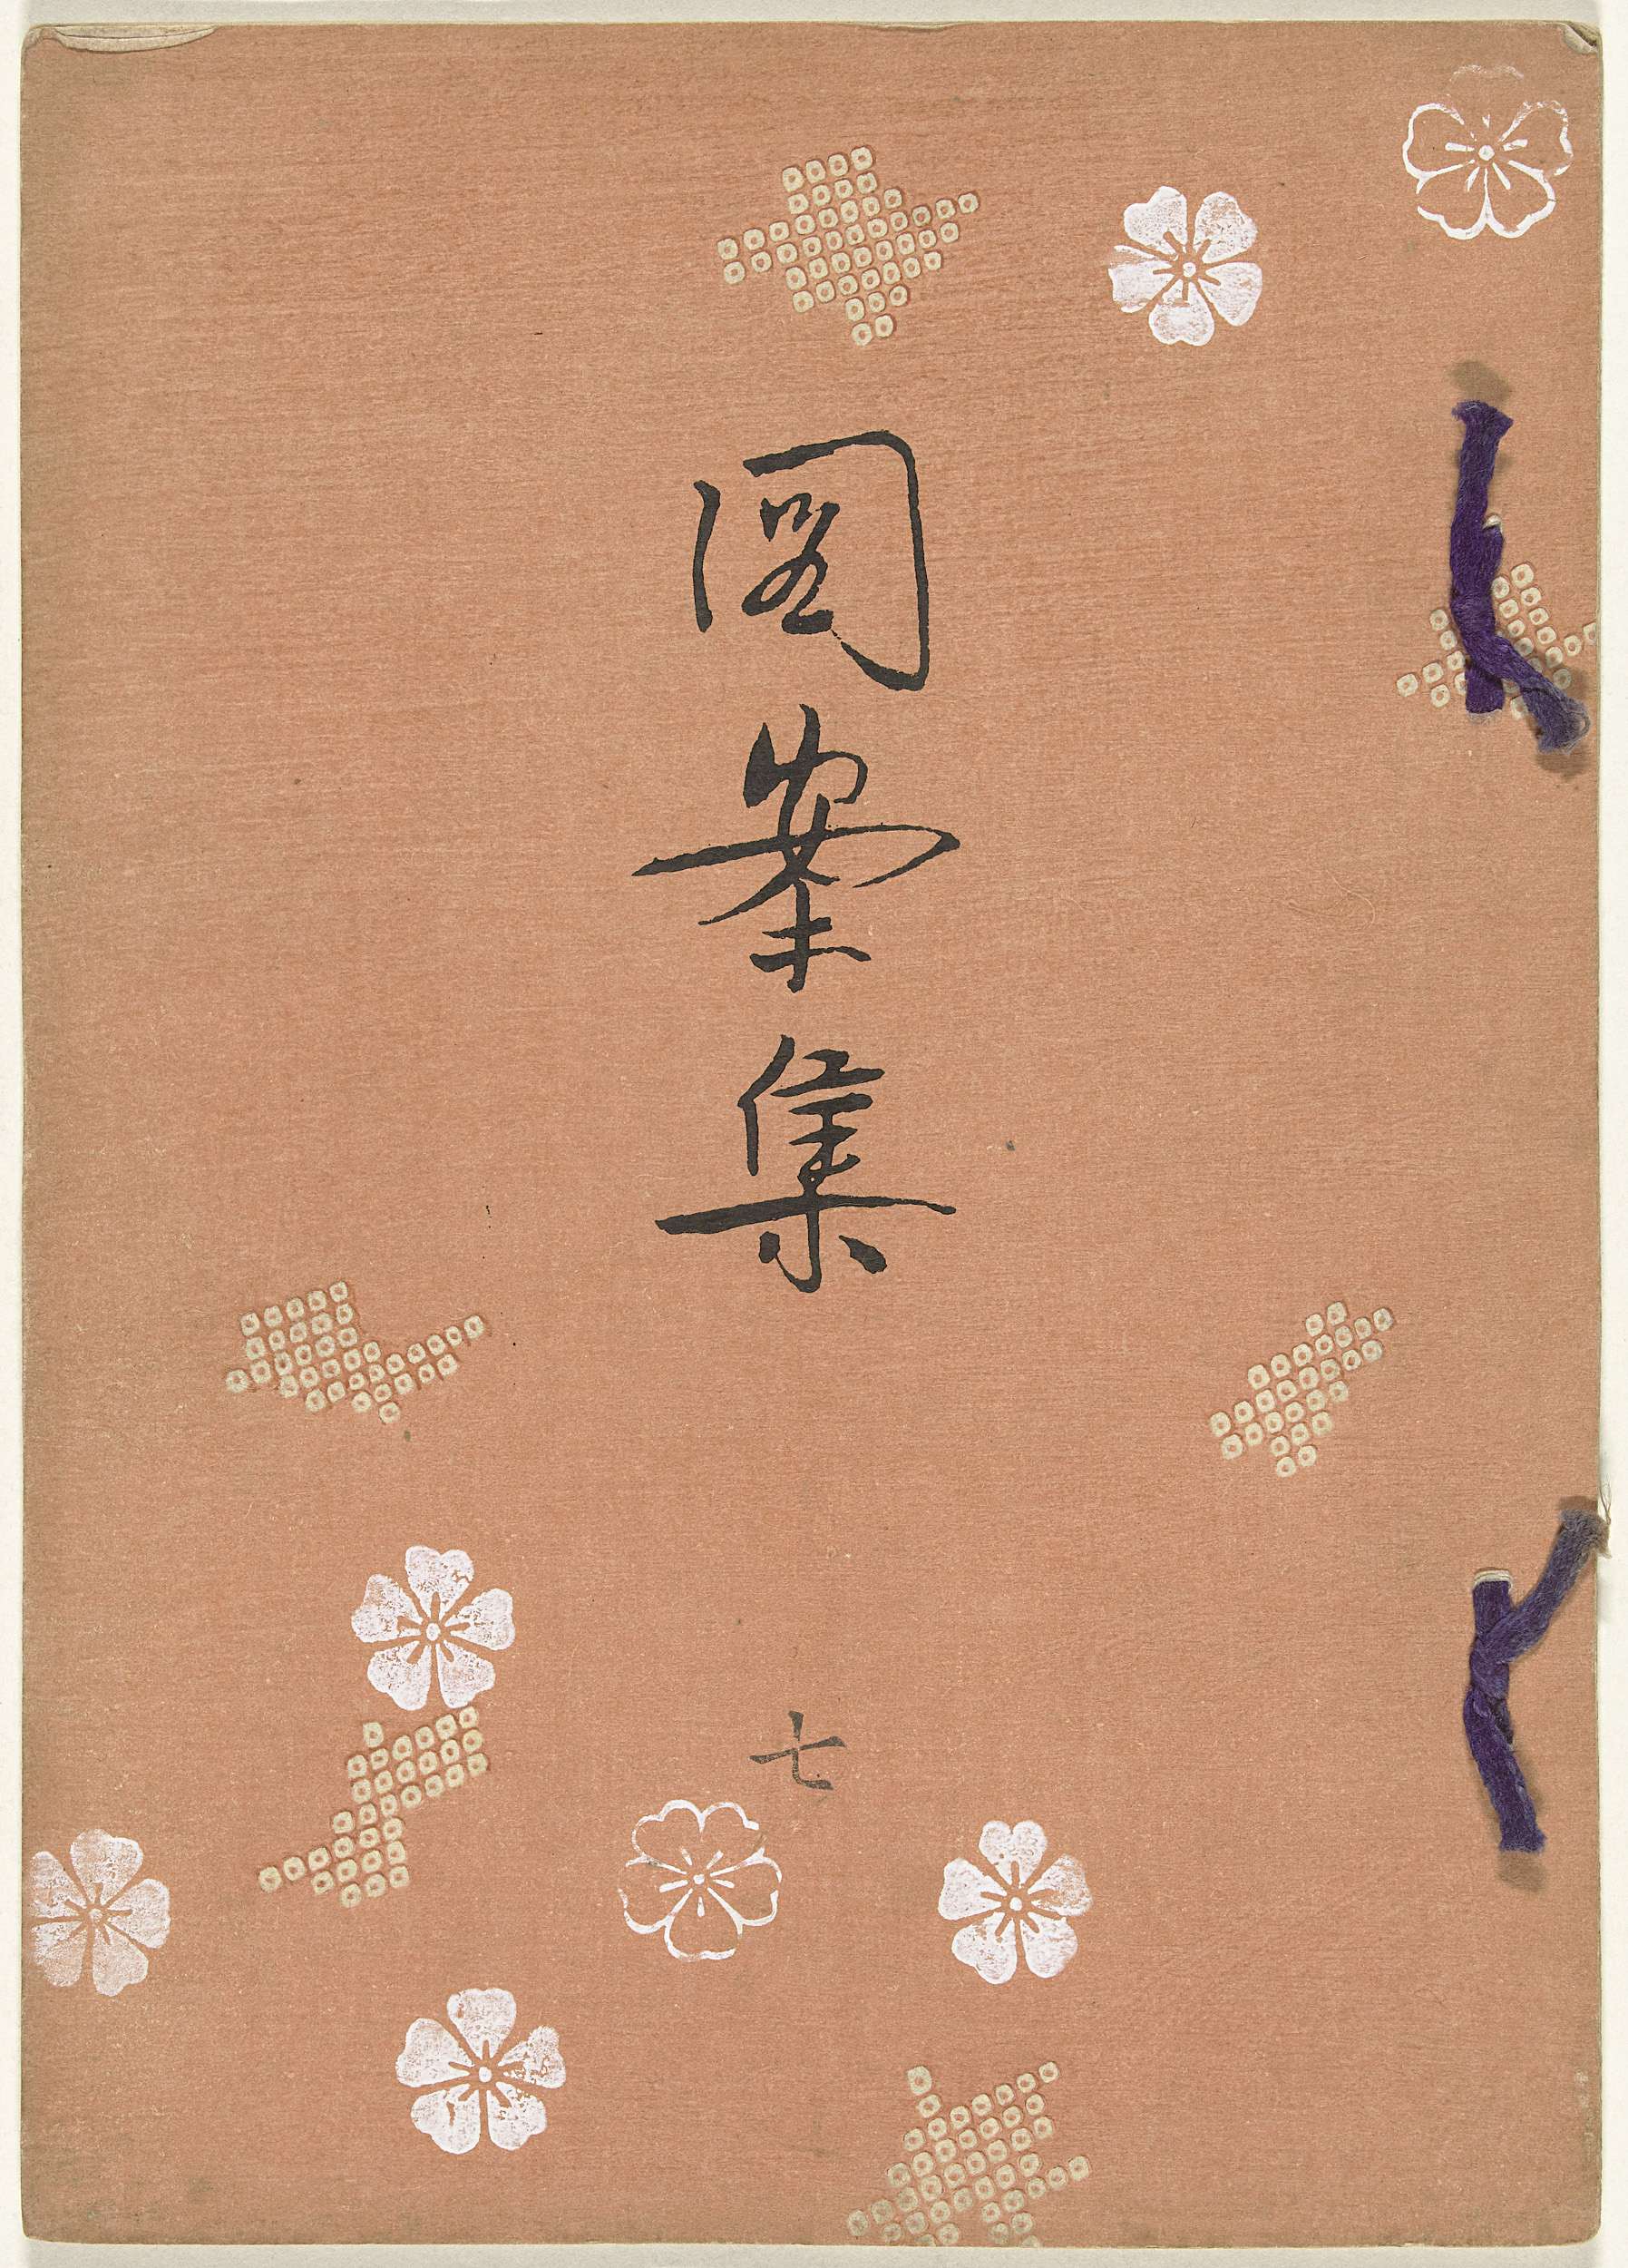 圖案集
七